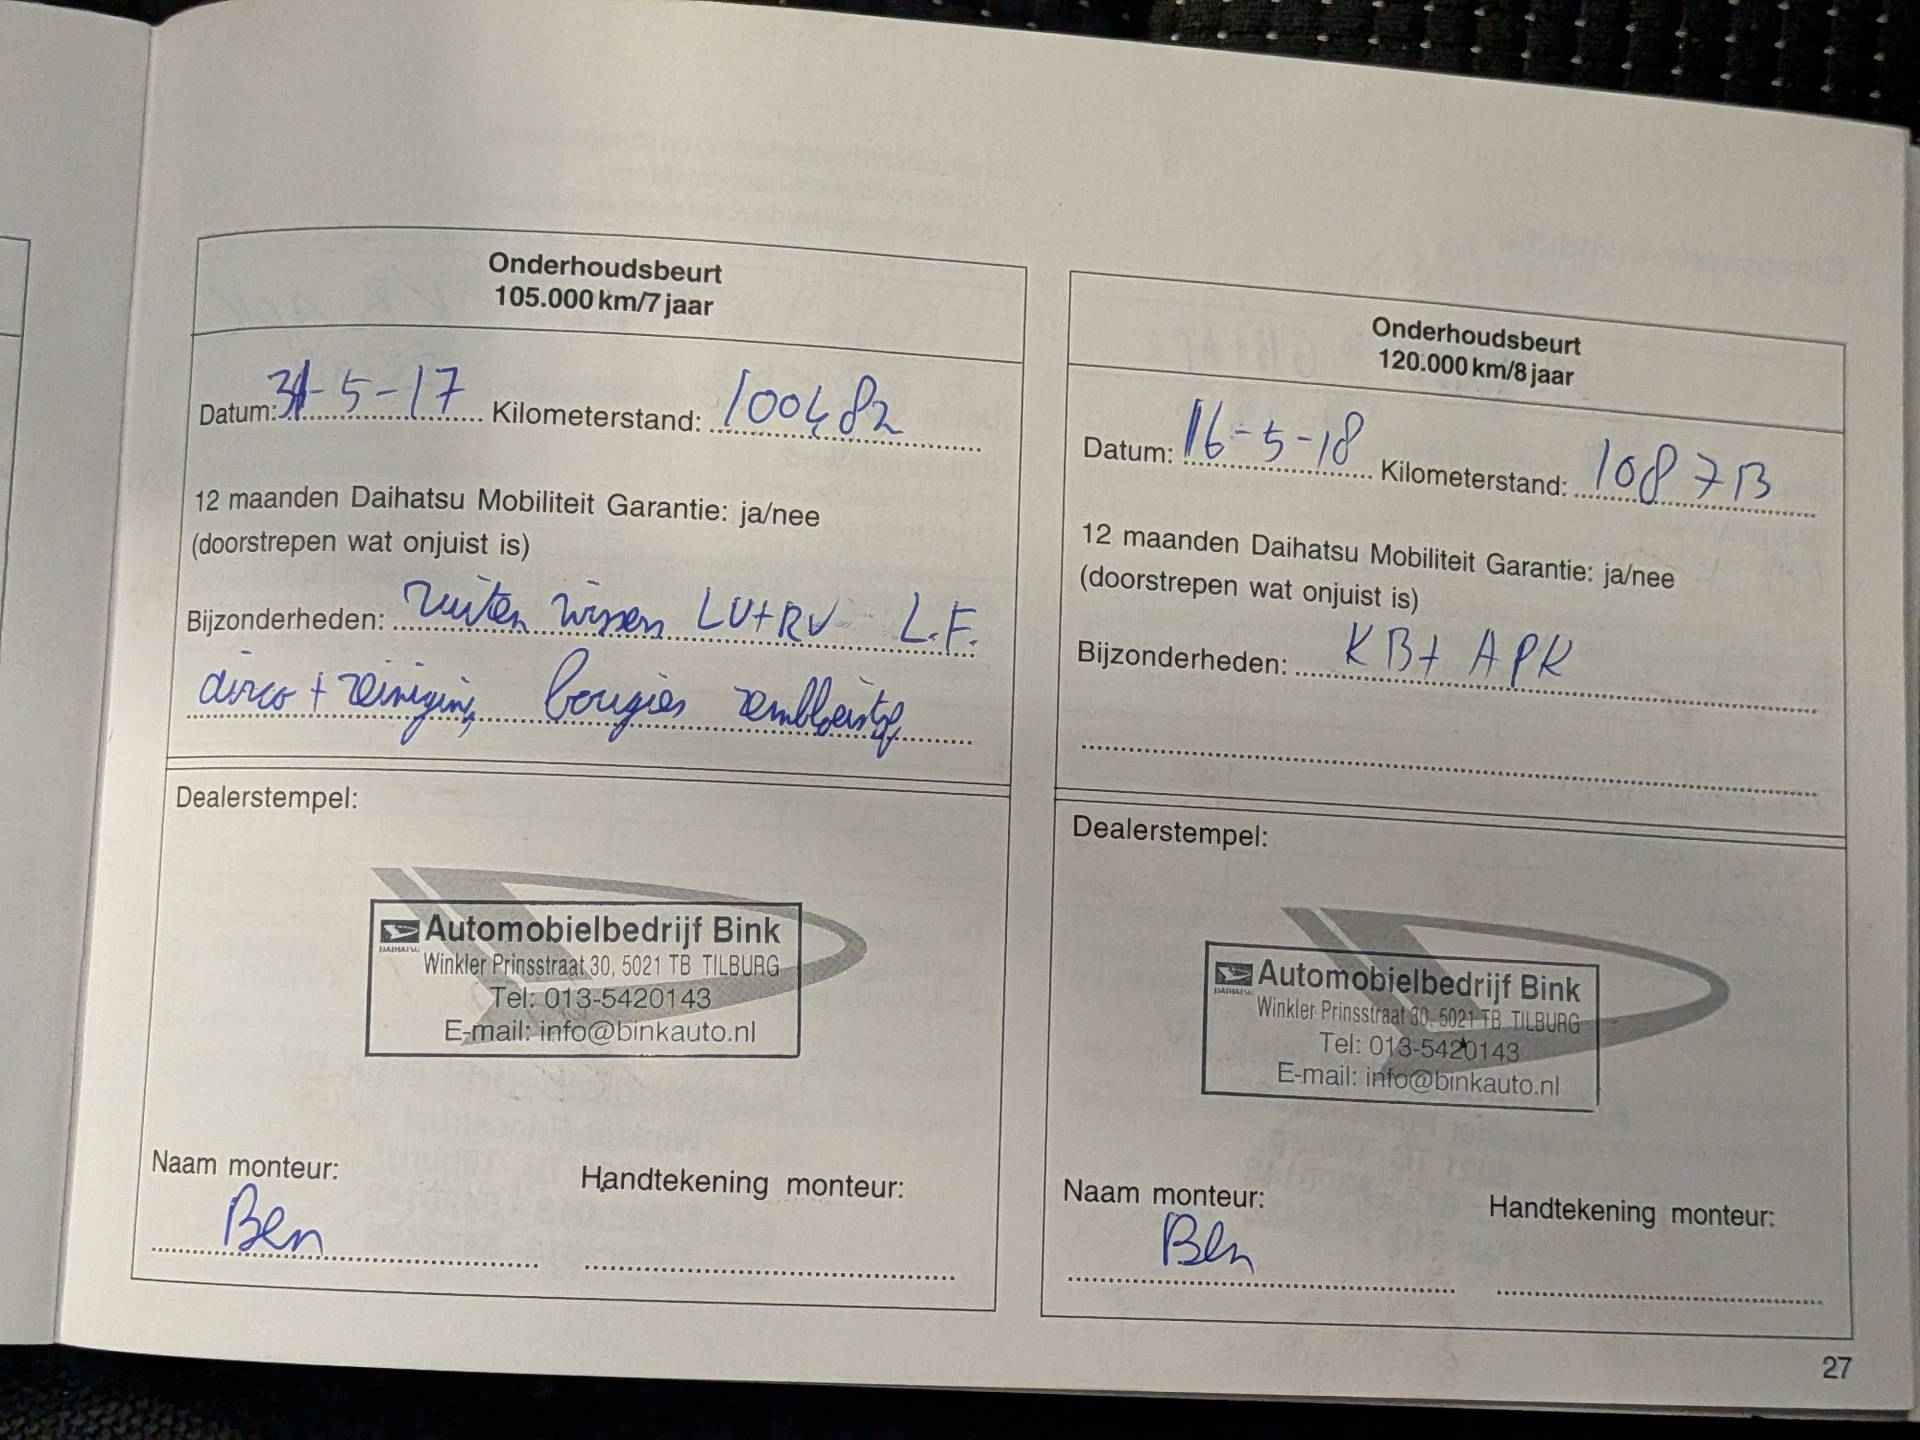 Onderhoudsbeurt
105.000 km/7 jaar
Datum: 31-5-17 Kilometerstand: 100482
12 maanden Daihatsu Mobiliteit Garantie: ja/nee
(doorstrepen wat onjuist is)
Bijzonderheden: ruiten wissen LV+RV L.F.
airco + reiniging bougies remvloeistof
Dealerstempel:
DAIHATSU Automobielbedrijf Bink
Winkler Prinsstraat 30, 5021 TB TILBURG
Tel: 013-5420143
E-mail: info@binkauto.nl
Naam monteur: Handtekening monteur:
Ben
Onderhoudsbeurt
120.000 km/8 jaar
Datum: 16-5-18 Kilometerstand: 108713
12 maanden Daihatsu Mobiliteit Garantie: ja/nee
(doorstrepen wat onjuist is)
Bijzonderheden: KB+ APK
Dealerstempel:
DAIHATSU Automobielbedrijf Bink
Winkler Prinsstraat 30, 5021 TB TILBURG
Tel: 013-5420143
E-mail: info@binkauto.nl
Naam monteur: Handtekening monteur:
Ben
27